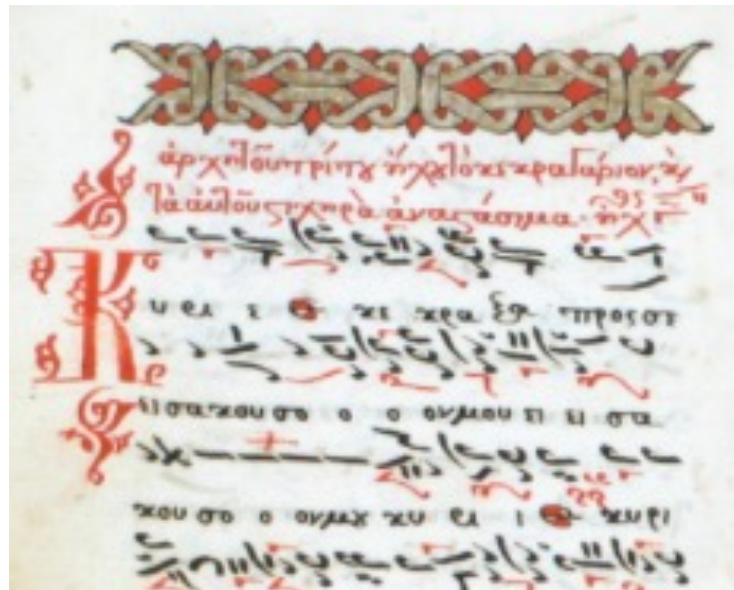 ἀρχὴ τοῦ τρίτου ἤχου τὸ κεκραγάριον, κ̀
τὰ αὐτοῦ στιχηρὰ ἀναστάσιμα· ἦχ
Κυ ρι ι ε κε κρα ξα προς σε
εισακουσο ο ο ονμου ει ει σα
κουσο ο ονμου κυ ρι ι ε κυρι